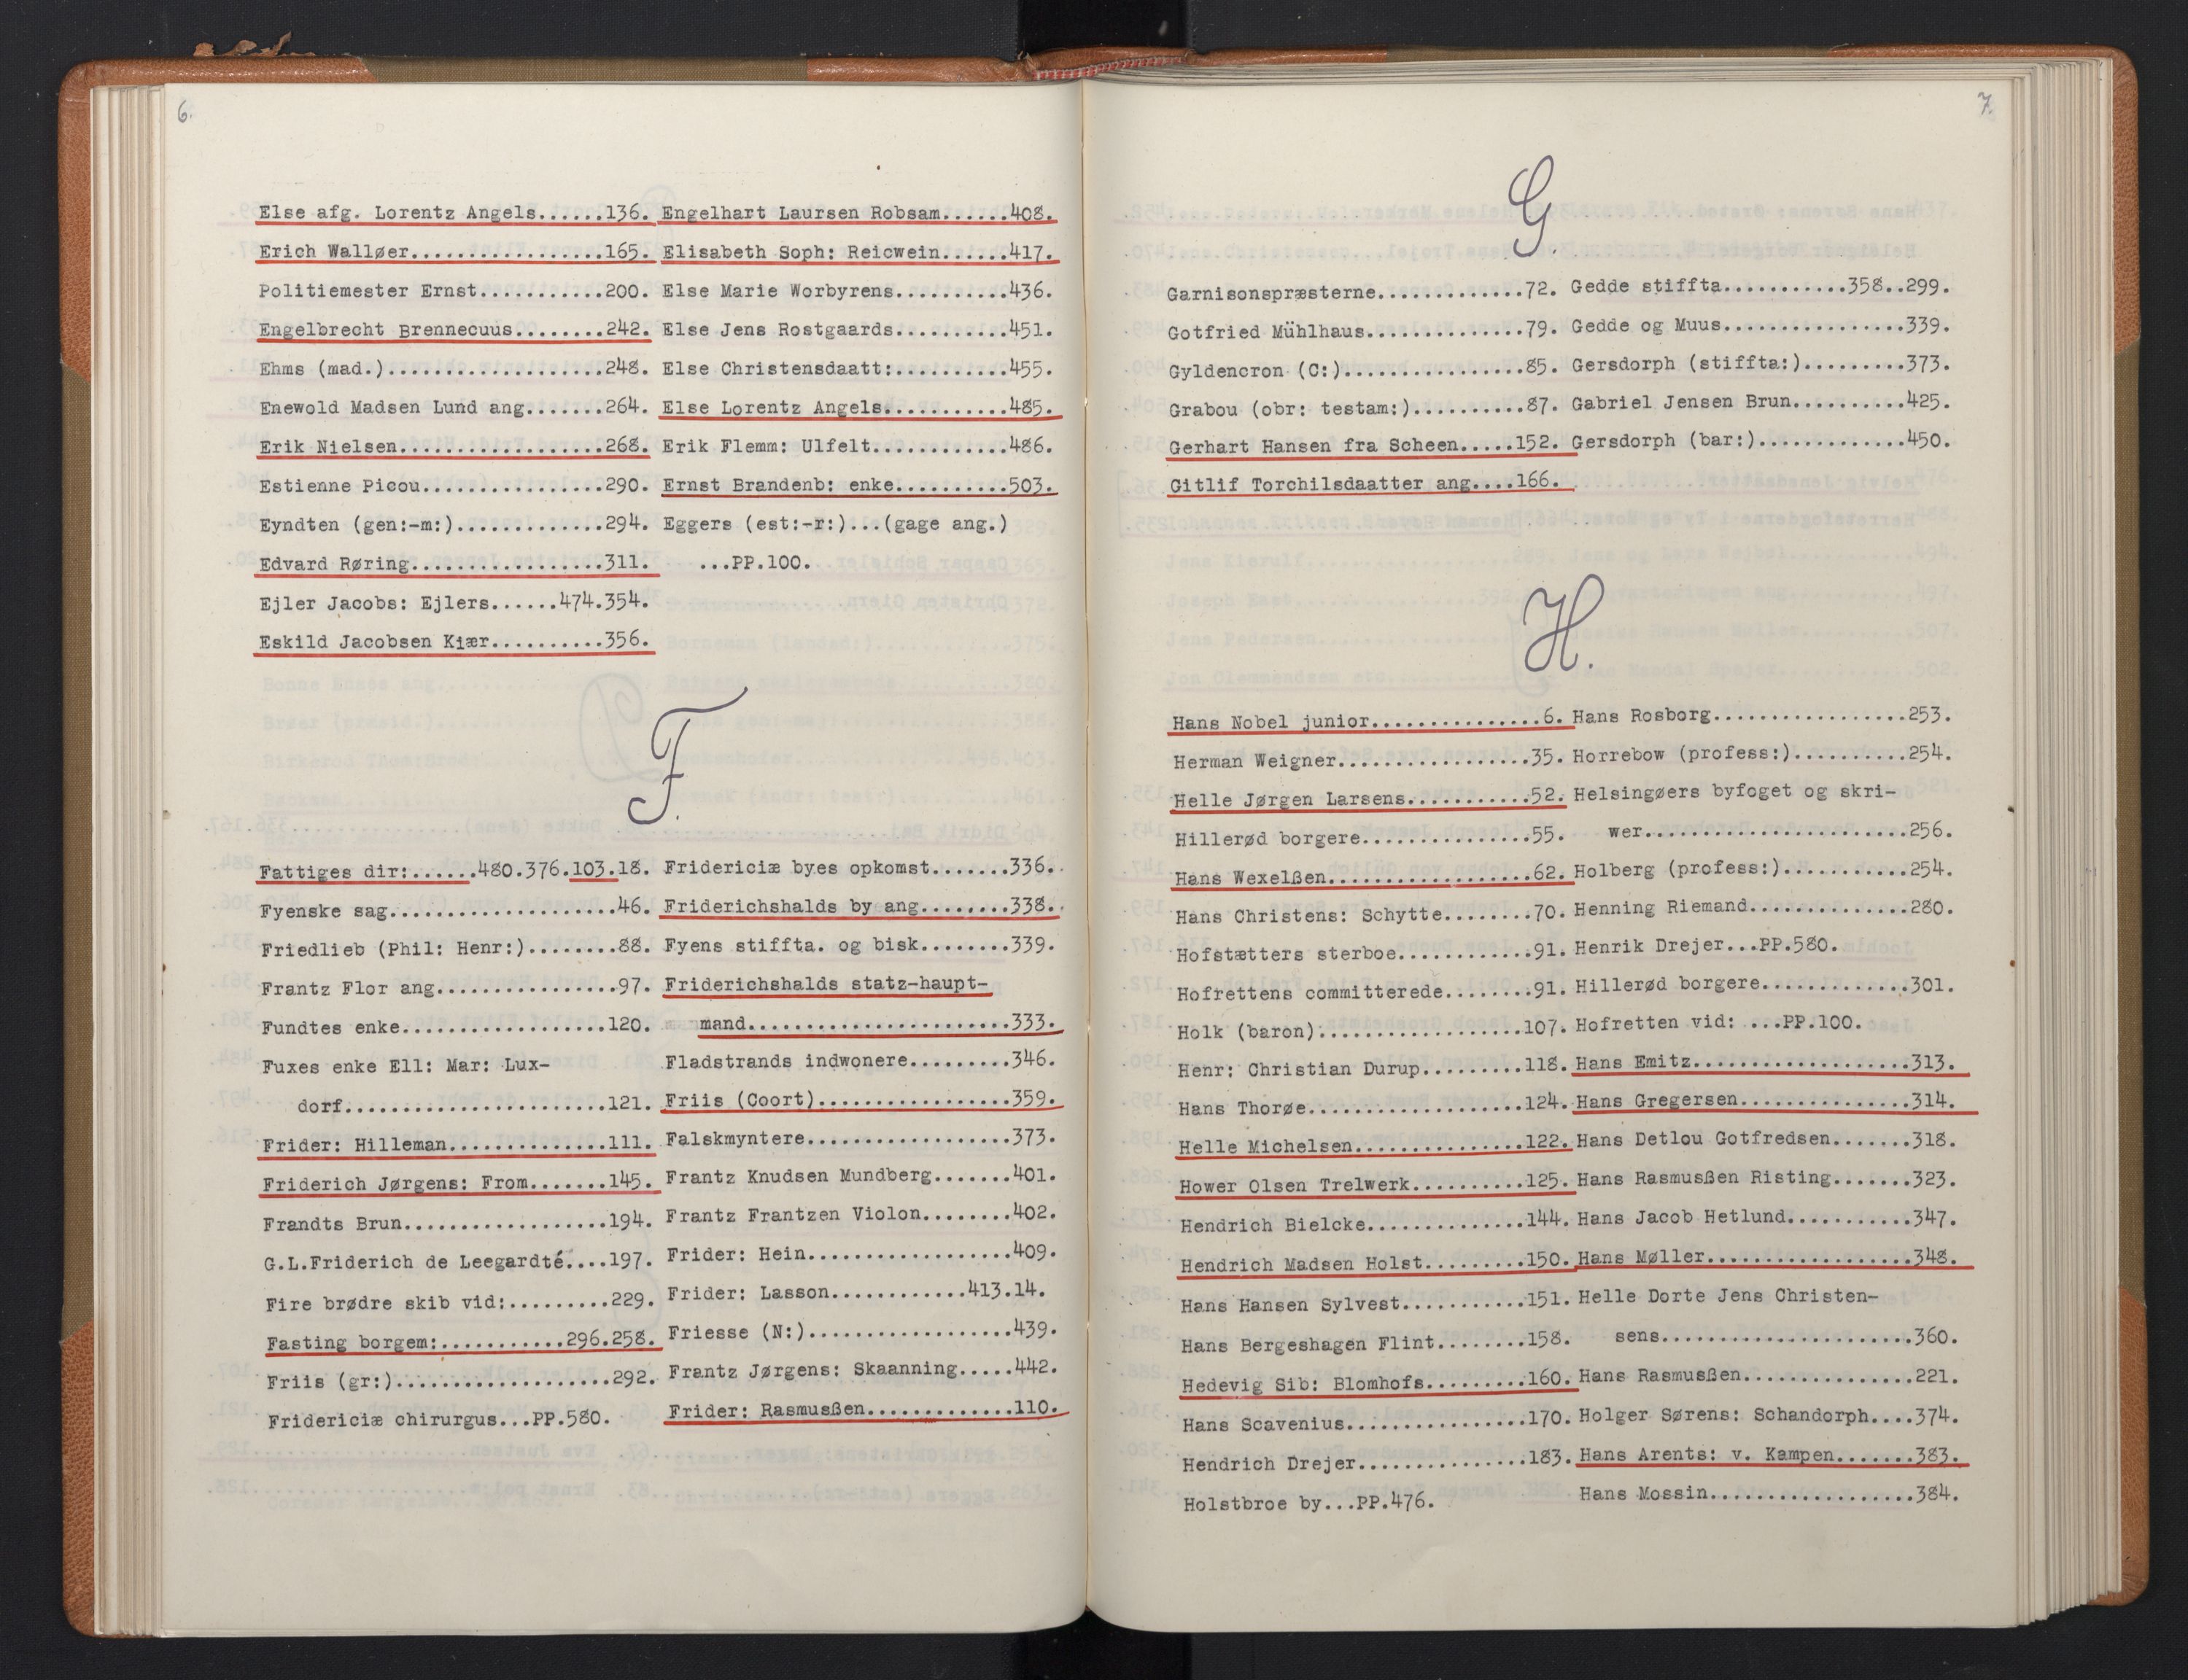 6.
Else afg. Lorentz Angels......136.
Erich Walløer.................165.
Politiemester Ernst...........200.
Engelbrecht Brennecuus........242.
Ehms (mad.)...................248.
Enewold Madsen Lund ang.......264.
Erik Nielsen..................268.
Estienne Picou................290.
Eyndten (gen:-m:).............294.
Edvard Røring.................311.
Ejler Jacobs: Ejlers......474.354.
Eskild Jacobsen Kiær..........356.
Engelhart Laursen Robsam......408.
Elisabeth Soph: Reicwein......417.
Else Marie Worbyrens..........436.
Else Jens Rostgaards..........451.
Else Christensdaatt:..........455.
Else Lorentz Angels...........485.
Erik Flemm: Ulfelt............486.
Ernst Brandenb: enke..........503.
Eggers (est:-r:)...(gage ang.)
...PP.100.
F.
Fattiges dir:......480.376.103.18.
Fyenske sag....................46.
Friedlieb (Phil: Henr:)........88.
Frantz Flor ang................97.
Fundtes enke..................120.
Fuxes enke Ell: Mar: Lux-
dorf.......................121.
Frider: Hilleman..............111.
Friderich Jørgens: From.......145.
Frandts Brun..................194.
G.L.Friderich de Leegardté....197.
Fire brødre skib vid:.........229.
Fasting borgem:...........296.258.
Friis (gr:)...................292.
Fridericiæ chirurgus...PP.580.
Fridericiæ byes opkomst.......336.
Friderichshalds by ang........338.
Fyens stiffta. og bisk........339.
Friderichshalds statz-haupt-
mand.......................333.
Fladstrands indwonere.........346.
Friis (Coort).................359.
Falskmyntere..................373.
Frantz Knudsen Mundberg.......401.
Frantz Frantzen Violon........402.
Frider: Hein..................409.
Frider: Lasson............413.14.
Friesse (N:)..................439.
Frantz Jørgens: Skaanning.....442.
Frider: Rasmusßen.............110.
7.
G.
Garnisonspræsterne.............72.
Gotfried Mühlhaus..............79.
Gyldencron (C:)................85.
Grabou (obr: testam:)..........87.
Gerhart Hansen fra Scheen.....152.
Gitlif Torchilsdaatter ang....166.
Gedde stiffta...........358..299.
Gedde og Muus................339.
Gersdorph (stiffta:).........373.
Gabriel Jensen Brun..........425.
Gersdorph (bar:).............450.
H.
Hans Nobel junior...............6.
Herman Weigner.................35.
Helle Jørgen Larsens...........52.
Hillerød borgere...............55.
Hans Wexelßen..................62.
Hans Christens: Schytte........70.
Hofstætters sterboe............91.
Hofrettens committerede........91.
Holk (baron)..................107.
Henr: Christian Durup.........118.
Hans Thorøe...................124.
Helle Michelsen...............122.
Hower Olsen Trelwerk..........125.
Hendrich Bielcke..............144.
Hendrich Madsen Holst.........150.
Hans Hansen Sylvest...........151.
Hans Bergeshagen Flint........158.
Hedevig Sib: Blomhofs.........160.
Hans Scavenius................170.
Hendrich Drejer...............183.
Holstbroe by...PP.476.
Hans Rosborg.................253.
Horrebow (profess:)..........254.
Helsingøers byfoget og skri-
wer.......................256.
Holberg (profess:)...........254.
Henning Riemand..............280.
Henrik Drejer...PP.580.
Hillerød borgere.............301.
Hofretten vid: ...PP.100.
Hans Emitz...................313.
Hans Gregersen...............314.
Hans Detlou Gotfredsen.......318.
Hans Rasmusßen Risting.......323.
Hans Jacob Hetlund...........347.
Hans Møller..................348.
Helle Dorte Jens Christen-
sens......................360.
Hans Rasmusßen...............221.
Holger Sørens: Schandorph....374.
Hans Arents: v. Kampen.......383.
Hans Mossin..................384.